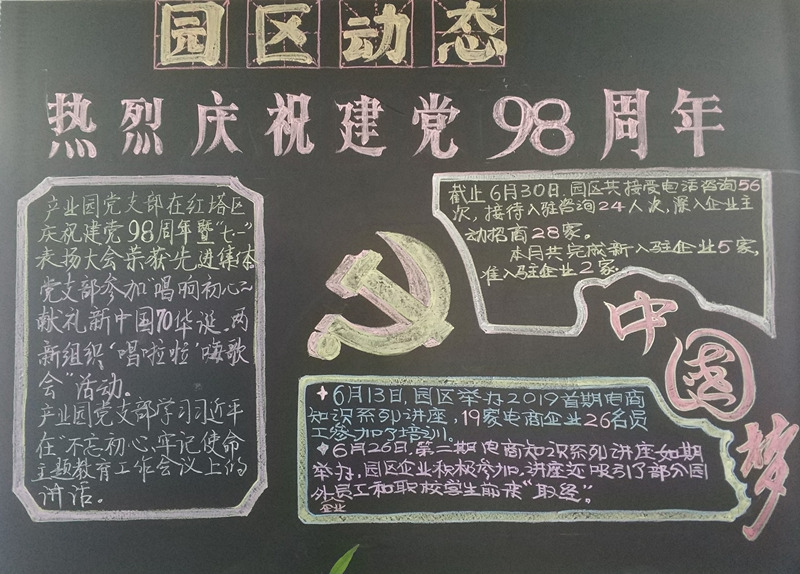 园区动态
热烈庆祝建党98周年
产业园党支部在红塔区
庆祝建党98周年暨“七一”
表扬大会荣获先进集体
党支部参加“唱响初心
献礼新中国70华诞,两
新组织“唱啦啦”嗨歌
会”活动。
产业园党支部学习习近平
在“不忘初心、牢记使命
主题教育工作会议上的
讲话。
截止6月30日,园区共接受电话咨询56
次,接待入驻咨询24人次,深入企业主
动招商28家。
本月共完成新入驻企业5家,
准入驻企业2家
中国梦
6月13日,园区举办2019首期电商
知识系列讲座,19家电商企业26名员
工参加了培训。
6月26日,第二期电商知识系列讲座如期
举办,园区企业积极参加,讲座还吸引了部分园
外员工和职校学生前来“取经”。
企业